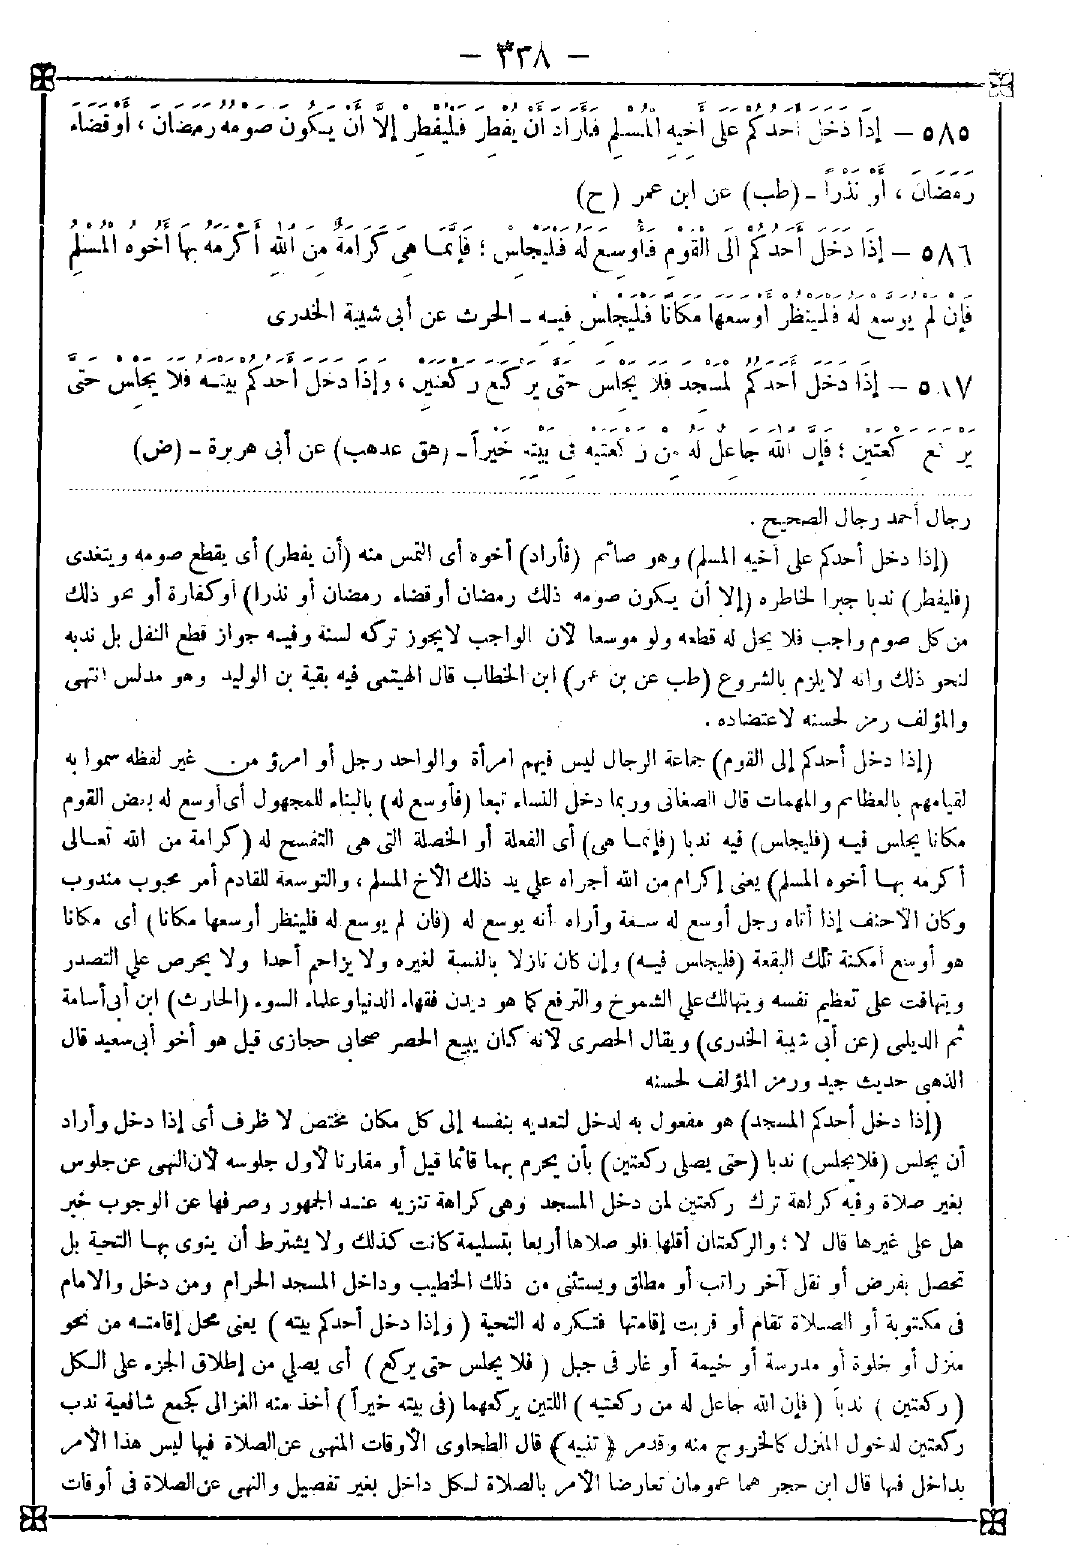 — ٣٣٨ —
٥٨٥ — إِذَا دَخَلَ أَحَدُكُمْ عَلَى أَخِيهِ الْمُسْلِمِ فَأَرَادَ أَنْ يُفْطِرَ فَلْيُفْطِرْ إِلَّا أَنْ يَكُونَ صَوْمُهُ رَمَضَانَ ، أَوْ قَضَاءَ
رَمَضَانَ ، أَوْ نَذْراً - (طب) عن ابن عمر (ح)
٥٨٦ — إِذَا دَخَلَ أَحَدُكُمْ إِلَى الْقَوْمِ فَأُوسِعَ لَهُ فَلْيَجْلِسْ ؛ فَإِنَّمَا هِيَ كَرَامَةٌ مِنَ اللهِ أَكْرَمَهُ بِهَا أَخُوهُ الْمُسْلِمُ
فَإِنْ لَمْ يُوَسَّعْ لَهُ فَلْيَنْظُرْ أَوْسَعَهَا مَكَانًا فَلْيَجْلِسْ فِيهِ - الحرث عن أبى شيبة الخدرى
٥٨٧ — إِذَا دَخَلَ أَحَدُكُمُ الْمَسْجِدَ فَلَا يَجْلِسْ حَتَّى يَرْكَعَ رَكْعَتَيْنِ ، وَإِذَا دَخَلَ أَحَدُكُمْ بَيْتَهُ فَلَا يَجْلِسْ حَتَّى
يَرْكَعَ رَكْعَتَيْنِ ؛ فَإِنَّ اللهَ جَاعِلٌ لَهُ مِنْ رَكْعَتَيْهِ فِى بَيْتِهِ خَيْراً - (هق عد هب) عن أبى هريرة - (ض)
رجال أحمد رجال الصحيح .
(إذا دخل أحدكم على أخيه المسلم) وهو صائم (فأراد) أخوه أى التمس منه (أن يفطر) أى يقطع صومه ويتغدى
(فليفطر) ندبا جبرا لخاطره (إلا أن يكون صومه ذلك رمضان أوقضاء رمضان أو نذرا) أوكفارة أو نحو ذلك
من كل صوم واجب فلا يحل له قطعه ولو موسعا لأن الواجب لايجوز تركه لسنة وفيه جواز قطع النفل بل ندبه
لنحو ذلك وانه لايلزم بالشروع (طب عن بن عمر) ابن الخطاب قال الهيتمى فيه بقية بن الوليد وهو مدلس انتهى
والمؤلف رمز لحسنه لاعتضاده .
(إذا دخل أحدكم إلى القوم) جماعة الرجال ليس فيهم امرأة والواحد رجل أو امرؤ من غير لفظه سموا به
لقيامهم بالعظائم والمهمات قال الصغانى وربما دخل النساء تبعا (فأوسع له) بالبناء للمجهول أى أوسع له بعض القوم
مكانا يجلس فيه (فليجلس) فيه ندبا (فإنما هى) أى الفعلة أو الخصلة التى هى التفسح له (كرامة من الله تعالى
أكرمه بها أخوه المسلم) يعنى إكرام من الله أجراه على يد ذلك الأخ المسلم ، والتوسعة للقادم أمر محبوب مندوب
وكان الأحنف إذا أتاه رجل أوسع له سعة وأراه أنه يوسع له (فان لم يوسع له فلينظر أوسعها مكانا) أى مكانا
هو أوسع أمكنة تلك البقعة (فليجلس فيه) وإن كان نازلا بالنسبة لغيره ولا يزاحم أحدا ولا يحرص على التصدر
ويتهافت على تعظيم نفسه ويتهالك على الشموخ والترفع كما هو ديدن فقهاء الدنيا وعلماء السوء (الحارث) ابن أبى أسامة
ثم الديلمى (عن أبى شيبة الخدرى) ويقال الحصرى لأنه كان يبيع الحصر صحابى حجازى قيل هو أخو أبى سعيد قال
الذهبى حديث جيد ورمز المؤلف لحسنه
(إذا دخل أحدكم المسجد) هو مفعول به لدخل لتعديه بنفسه إلى كل مكان مختص لا ظرف أى إذا دخل وأراد
أن يجلس (فلا يجلس) ندبا (حتى يصلى ركعتين) بأن يحرم بهما قائما قبل أو مقارنا لأول جلوسه لأن النهى عن جلوس
بغير صلاة وفيه كراهة ترك ركعتين لمن دخل المسجد وهى كراهة تنزيه عند الجمهور وصرفها عن الوجوب خبر
هل على غيرها قال لا ؛ والركعتان أقلها فلو صلاها أربعا بتسليمة كانت كذلك ولا يشترط أن ينوى بها التحية بل
تحصل بفرض أو نفل آخر راتب أو مطلق ويستثنى من ذلك الخطيب وداخل المسجد الحرام ومن دخل والامام
فى مكتوبة أو الصلاة تقام أو قربت إقامتها فتكره له التحية (وإذا دخل أحدكم بيته) يعنى محل إقامته من نحو
منزل أو خلوة أو مدرسة أو خيمة أو غار فى جبل (فلا يجلس حتى يركع) أى يصلى من إطلاق الجزء على الكل
(ركعتين) ندباً (فإن الله جاعل له من ركعتيه) اللتين يركعهما (فى بيته خيراً) أخذ منه الغزالى كجمع شافعية ندب
ركعتين لدخول المنزل كالخروج منه وقد مر (تنبيه) قال الطحاوى الأوقات المنهى عن الصلاة فيها ليس هذا الأمر
بداخل فيها قال ابن حجر هما عمومان تعارضا الأمر بالصلاة لكل داخل بغير تفصيل والنهى عن الصلاة فى أوقات